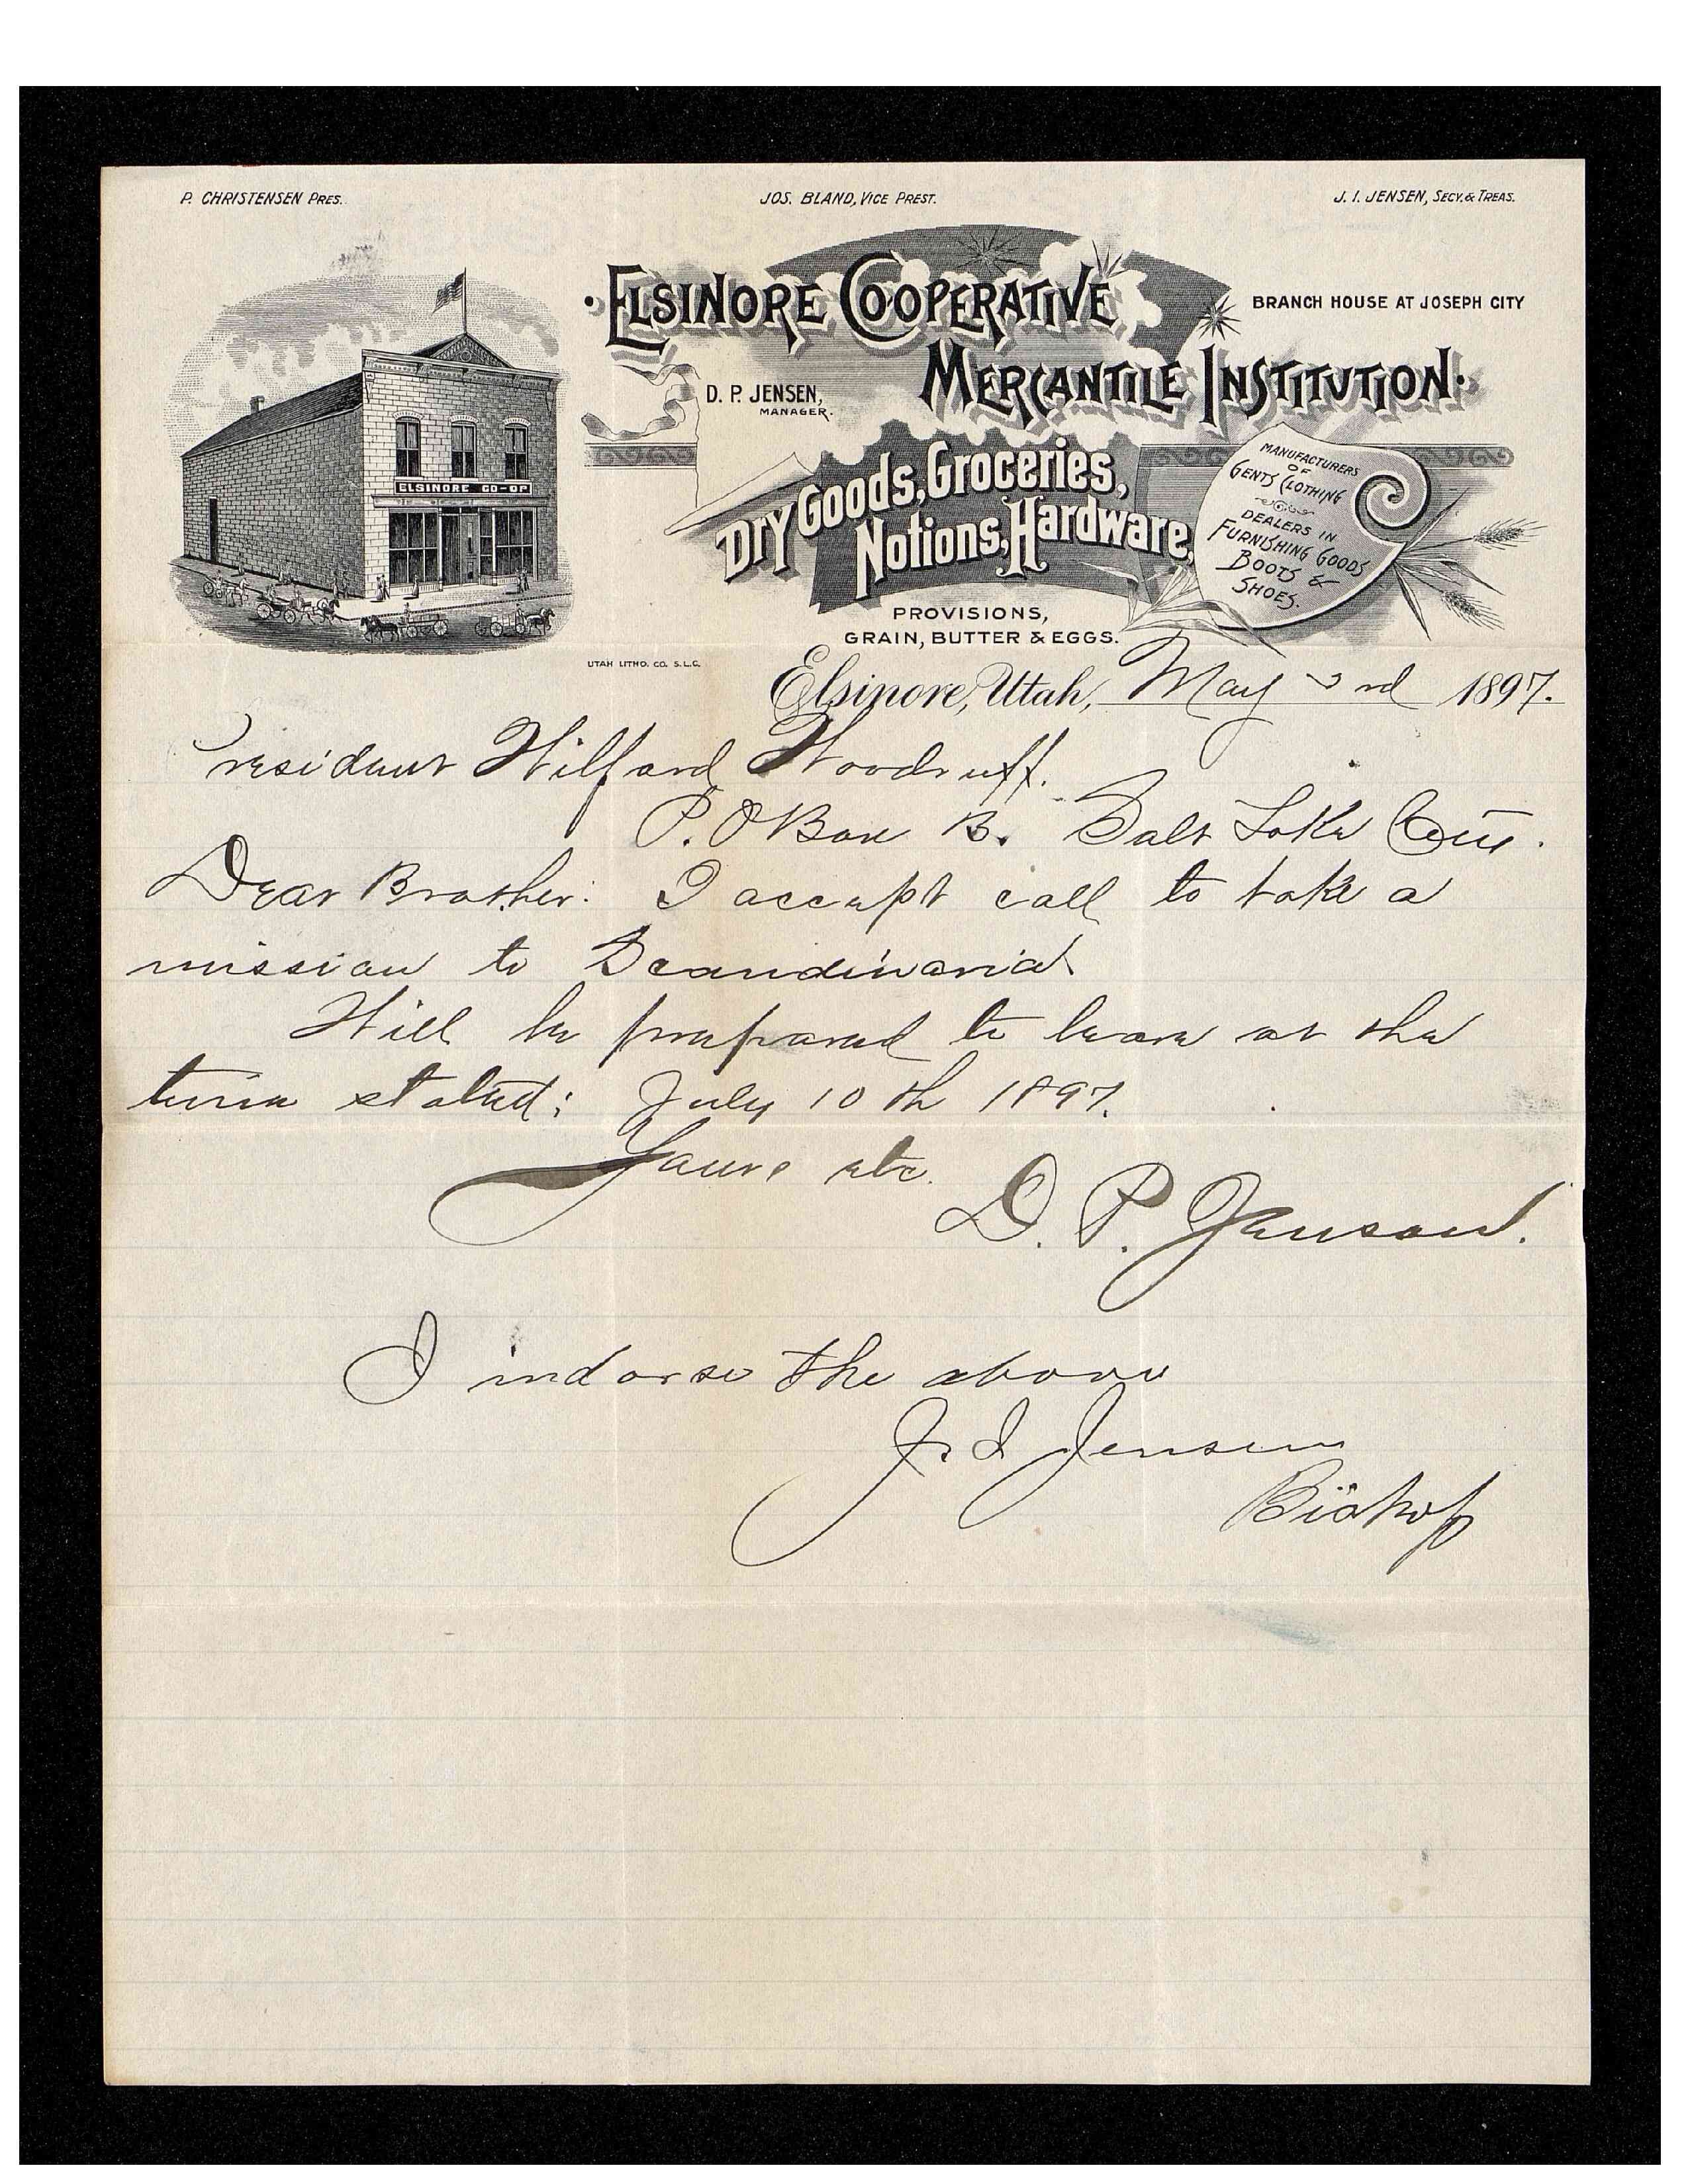 P. CHRISTENSEN PRES.
JOS. BLAND, VICE PREST.
J. I. JENSEN, SECY. & TREAS.
ELSINORE COOPERATIVE
BRANCH HOUSE AT JOSEPH CITY
MERCANTILE INSTITUTION.
D. P. JENSEN,
MANAGER.
ELSINORE CO-OP
Dry Goods, Groceries,
Notions, Hardware,
MANUFACTURERS
OF
GENTS CLOTHING
DEALERS IN
FURNISHING GOODS
BOOTS &
SHOES.
PROVISIONS,
GRAIN, BUTTER & EGGS.
UTAH LITHO. CO. S.L.C.
Elsinore, Utah, May 3rd 1897.
President Wilford Woodruff.
P. O Box B. Salt Lake City.
Dear Brother: I accept call to take a
mission to Scandinavia.
Will be prepared to leave at the
time stated; July 10th 1897.
Yours etc.
D. P. Jensen.
I indorse the above
J. I Jensen
Bishop